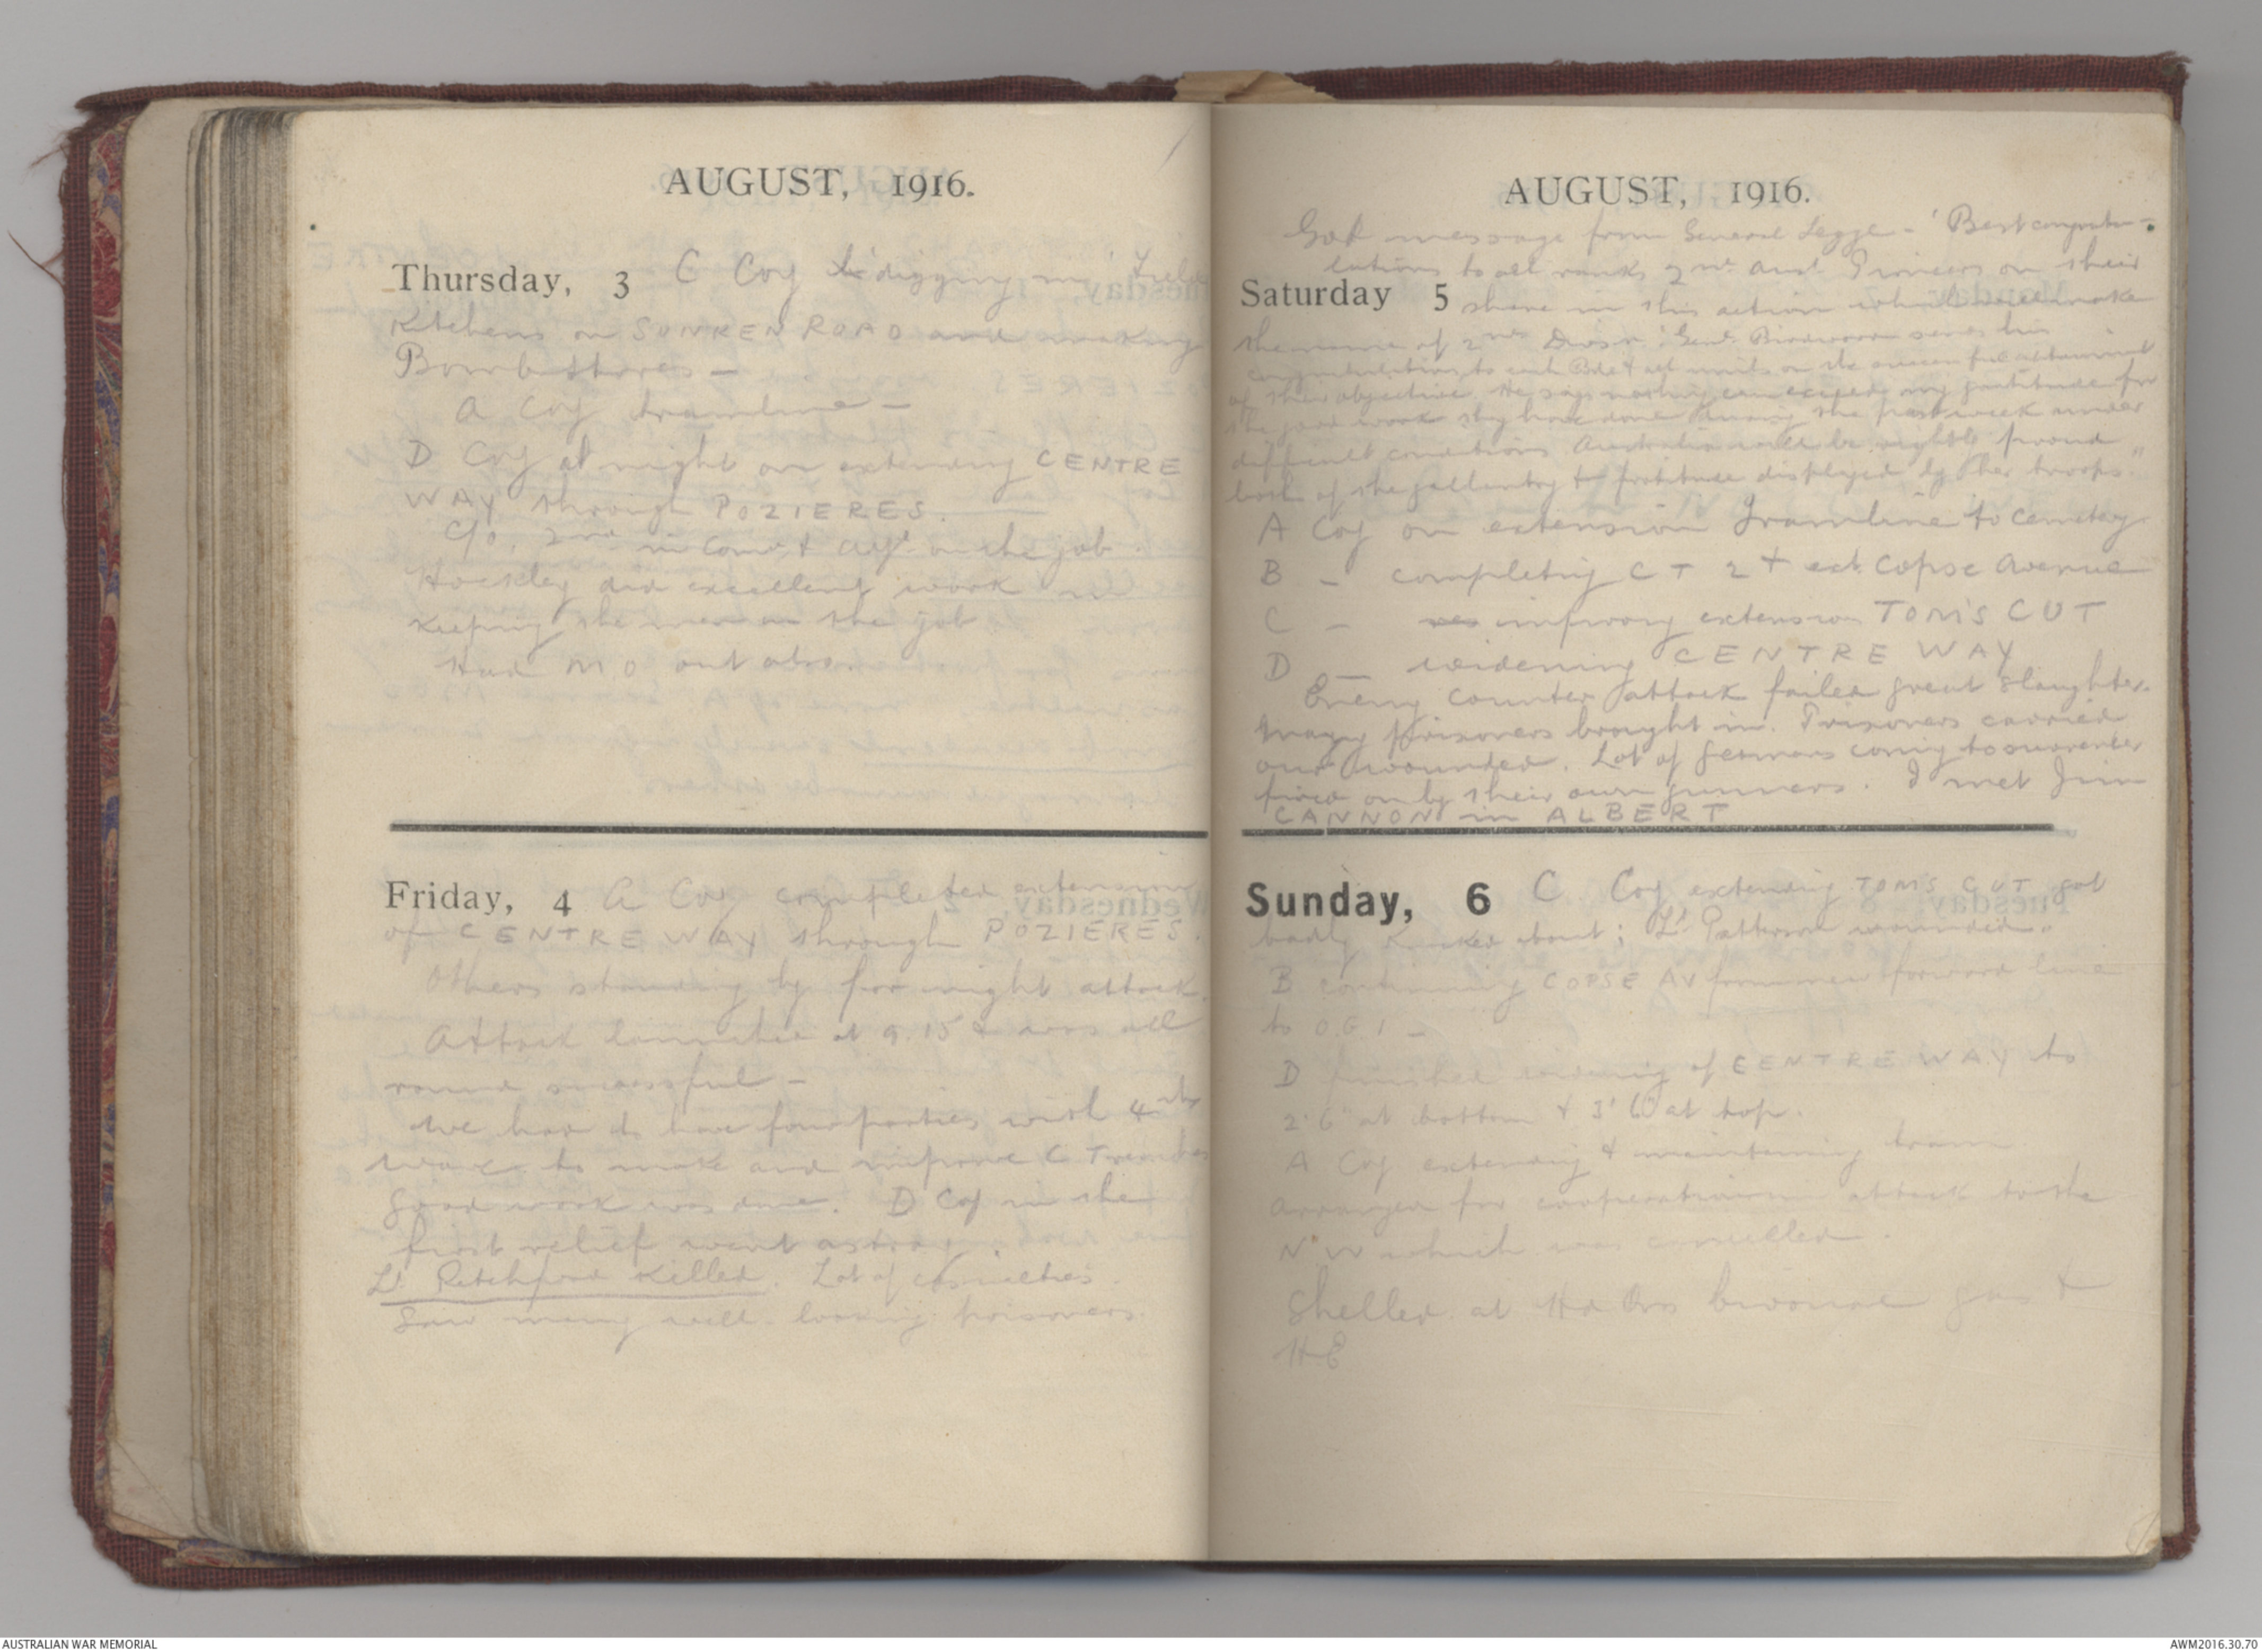 AUGUST, 1916.
Thursday, 3 C Coy digging in Field
Kitchens on SUNKEN ROAD and making
Bomb stores -
A Coy tramline -
D Coy at night on extending CENTRE
WAY through POZIERES.
C/o, 2nd in Comd & adjt on the job.
Hockley did excellent work in
keeping the men on the job
Had MO out also.
Friday, 4 A Coy completed extension
of CENTRE WAY through POZIERES.
Others standing by for night attack.
Attack launched at 9.15 & was all
round successful -
We had to have four parties with 4th
wave to make and improve C Trenches
Good work was done. D Coy in the
first relief went astray.
Lt Ratchford killed. Lot of casualties.
Saw many well looking prisoners.
AUGUST, 1916.
Got message from General Legge - 'Best congratu-
lations to all ranks 2nd Aust Pioneers on their
Saturday 5 share in this action which will make
the name of 2nd Divsn. Genl. Birdwood sends his
congratulations to each Bde & all units on the successful attainment
of their objective. He says nothing can exceed my gratitude for
the good work they have done during the past week under
difficult conditions Australia will be rightly proud
both of the gallantry & fortitude displayed by her troops"
A Coy on extension Tramline to Cemetery
B - completing CT 2 & ext. Copse Avenue
C - improving extension TOM'S CUT
D - widening CENTRE WAY
Enemy counter attack failed great slaughter.
Many prisoners brought in. Prisoners carried
our wounded. Lot of Germans coming to surrender
fired on by their own gunners. I met Jim
CANNON in ALBERT
Sunday, 6 C Coy extending TOM'S CUT got
badly knocked about; Lt Patterson wounded.
B continuing COPSE AV from new forward line
to O.G.1 -
D finished widening of CENTRE WAY to
2' 6" at bottom & 3' 6" at top.
A Coy extending & maintaining tram
Arranged for cooperation in attack to the
N'W which was cancelled.
Shelled at Hd Qrs bivouac gas &
HE
AUSTRALIAN WAR MEMORIAL
AWM2016.30.70